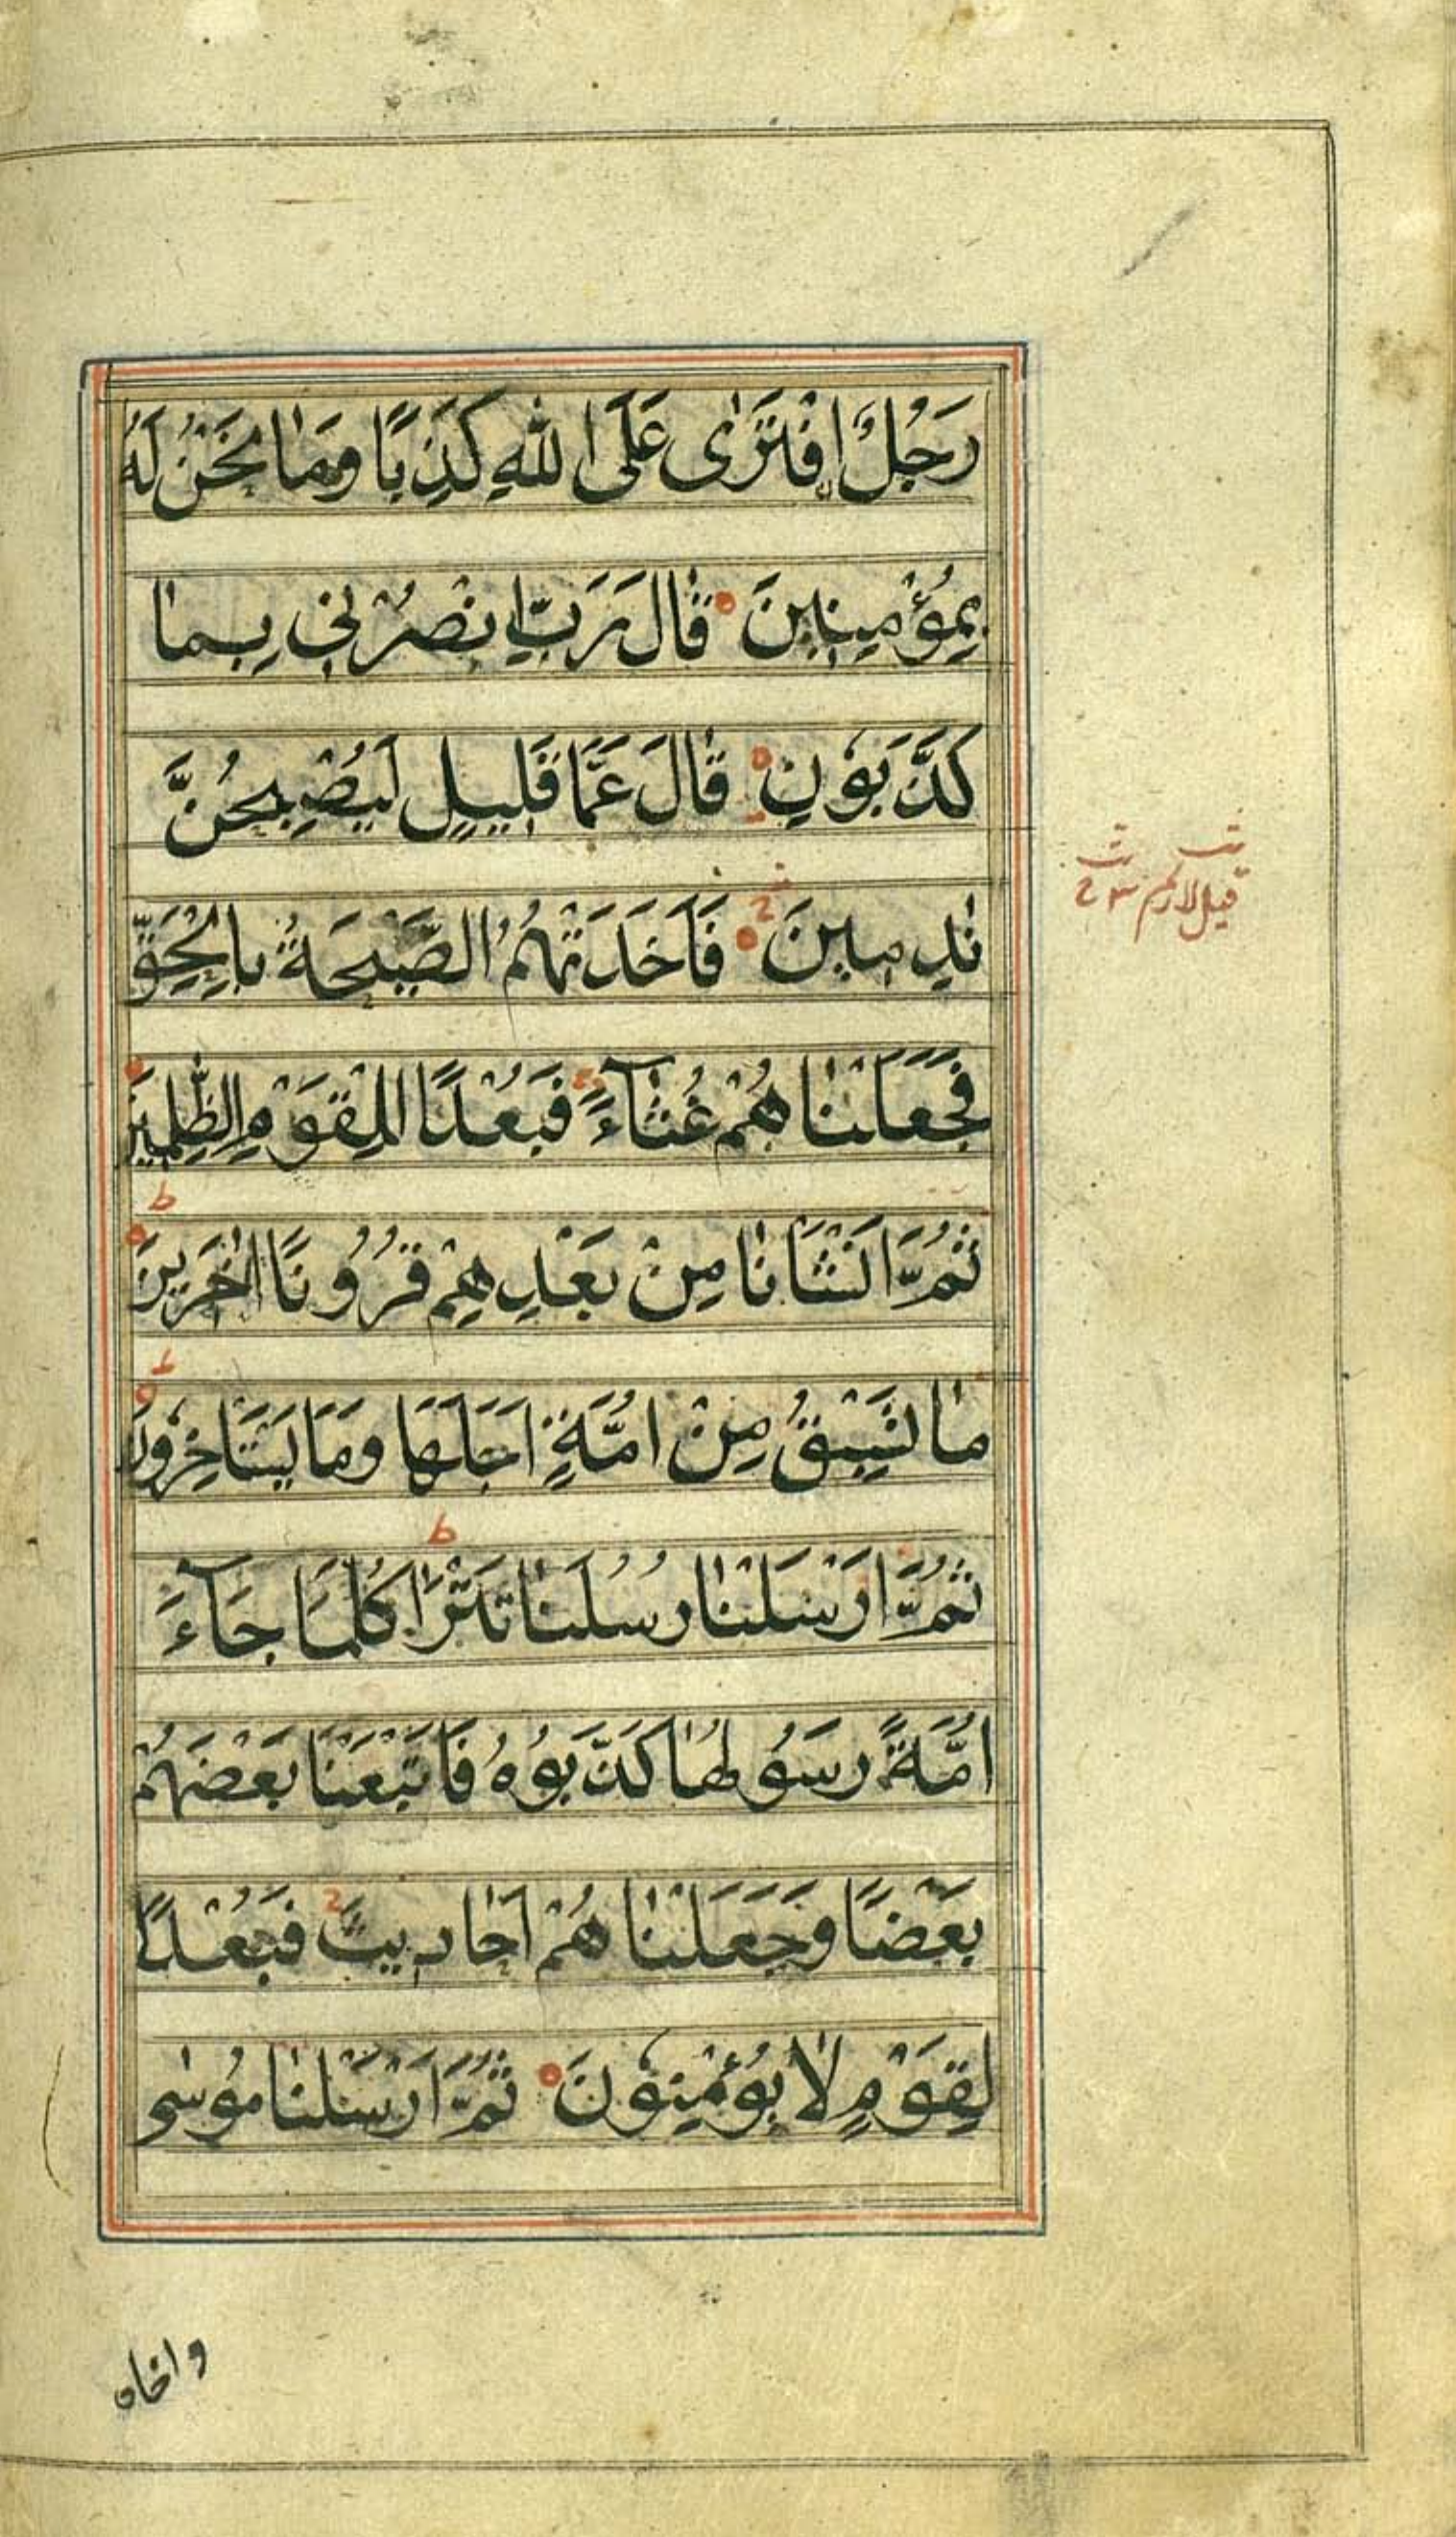 رَجُلٌ افْتَرٰى عَلَى اللّٰهِ كَذِبًا وَمٰا نَحْنُ لَهُ
بِمُؤْمِنِينَ ۝ قٰالَ رَبِّ انْصُرْنِي بِمٰا
كَذَّبُوْنِ ۝ قٰالَ عَمَّا قَلِيلٍ لَيُصْبِحُنَّ
نٰدِمِينَ ۝ فَاَخَذَتْهُمُ الصَّيْحَةُ بِالْحَقِّ
فَجَعَلْنٰاهُمْ غُثٰآءً فَبُعْدًا لِلْقَوْمِ الظّٰلِمِينَ
ثُمَّ اَنْشَاْنٰا مِنْ بَعْدِهِمْ قُرُونًا اٰخَرِينَ
مٰا تَسْبِقُ مِنْ اُمَّةٍ اَجَلَهَا وَمَا يَسْتَاْخِرُونَ
ثُمَّ اَرْسَلْنٰا رُسُلَنٰا تَتْرَا كُلَّمَا جَآءَ
اُمَّةً رَسُولُهٰا كَذَّبُوْهُ فَاَتْبَعْنَا بَعْضَهُمْ
بَعْضًا وَجَعَلْنٰاهُمْ اَحٰادِيثَ فَبُعْدًا
لِقَوْمٍ لٰا يُؤْمِنُوْنَ ۝ ثُمَّ اَرْسَلْنٰا مُوسٰى
واخاه